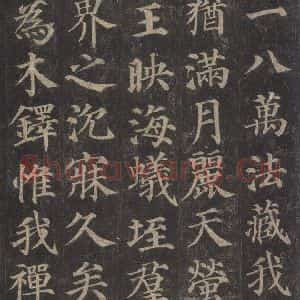 一八萬法藏我
猶滿月麗天螢
王映海蟻垤羣
界之沉寐久矣
為木鐸惟我禪